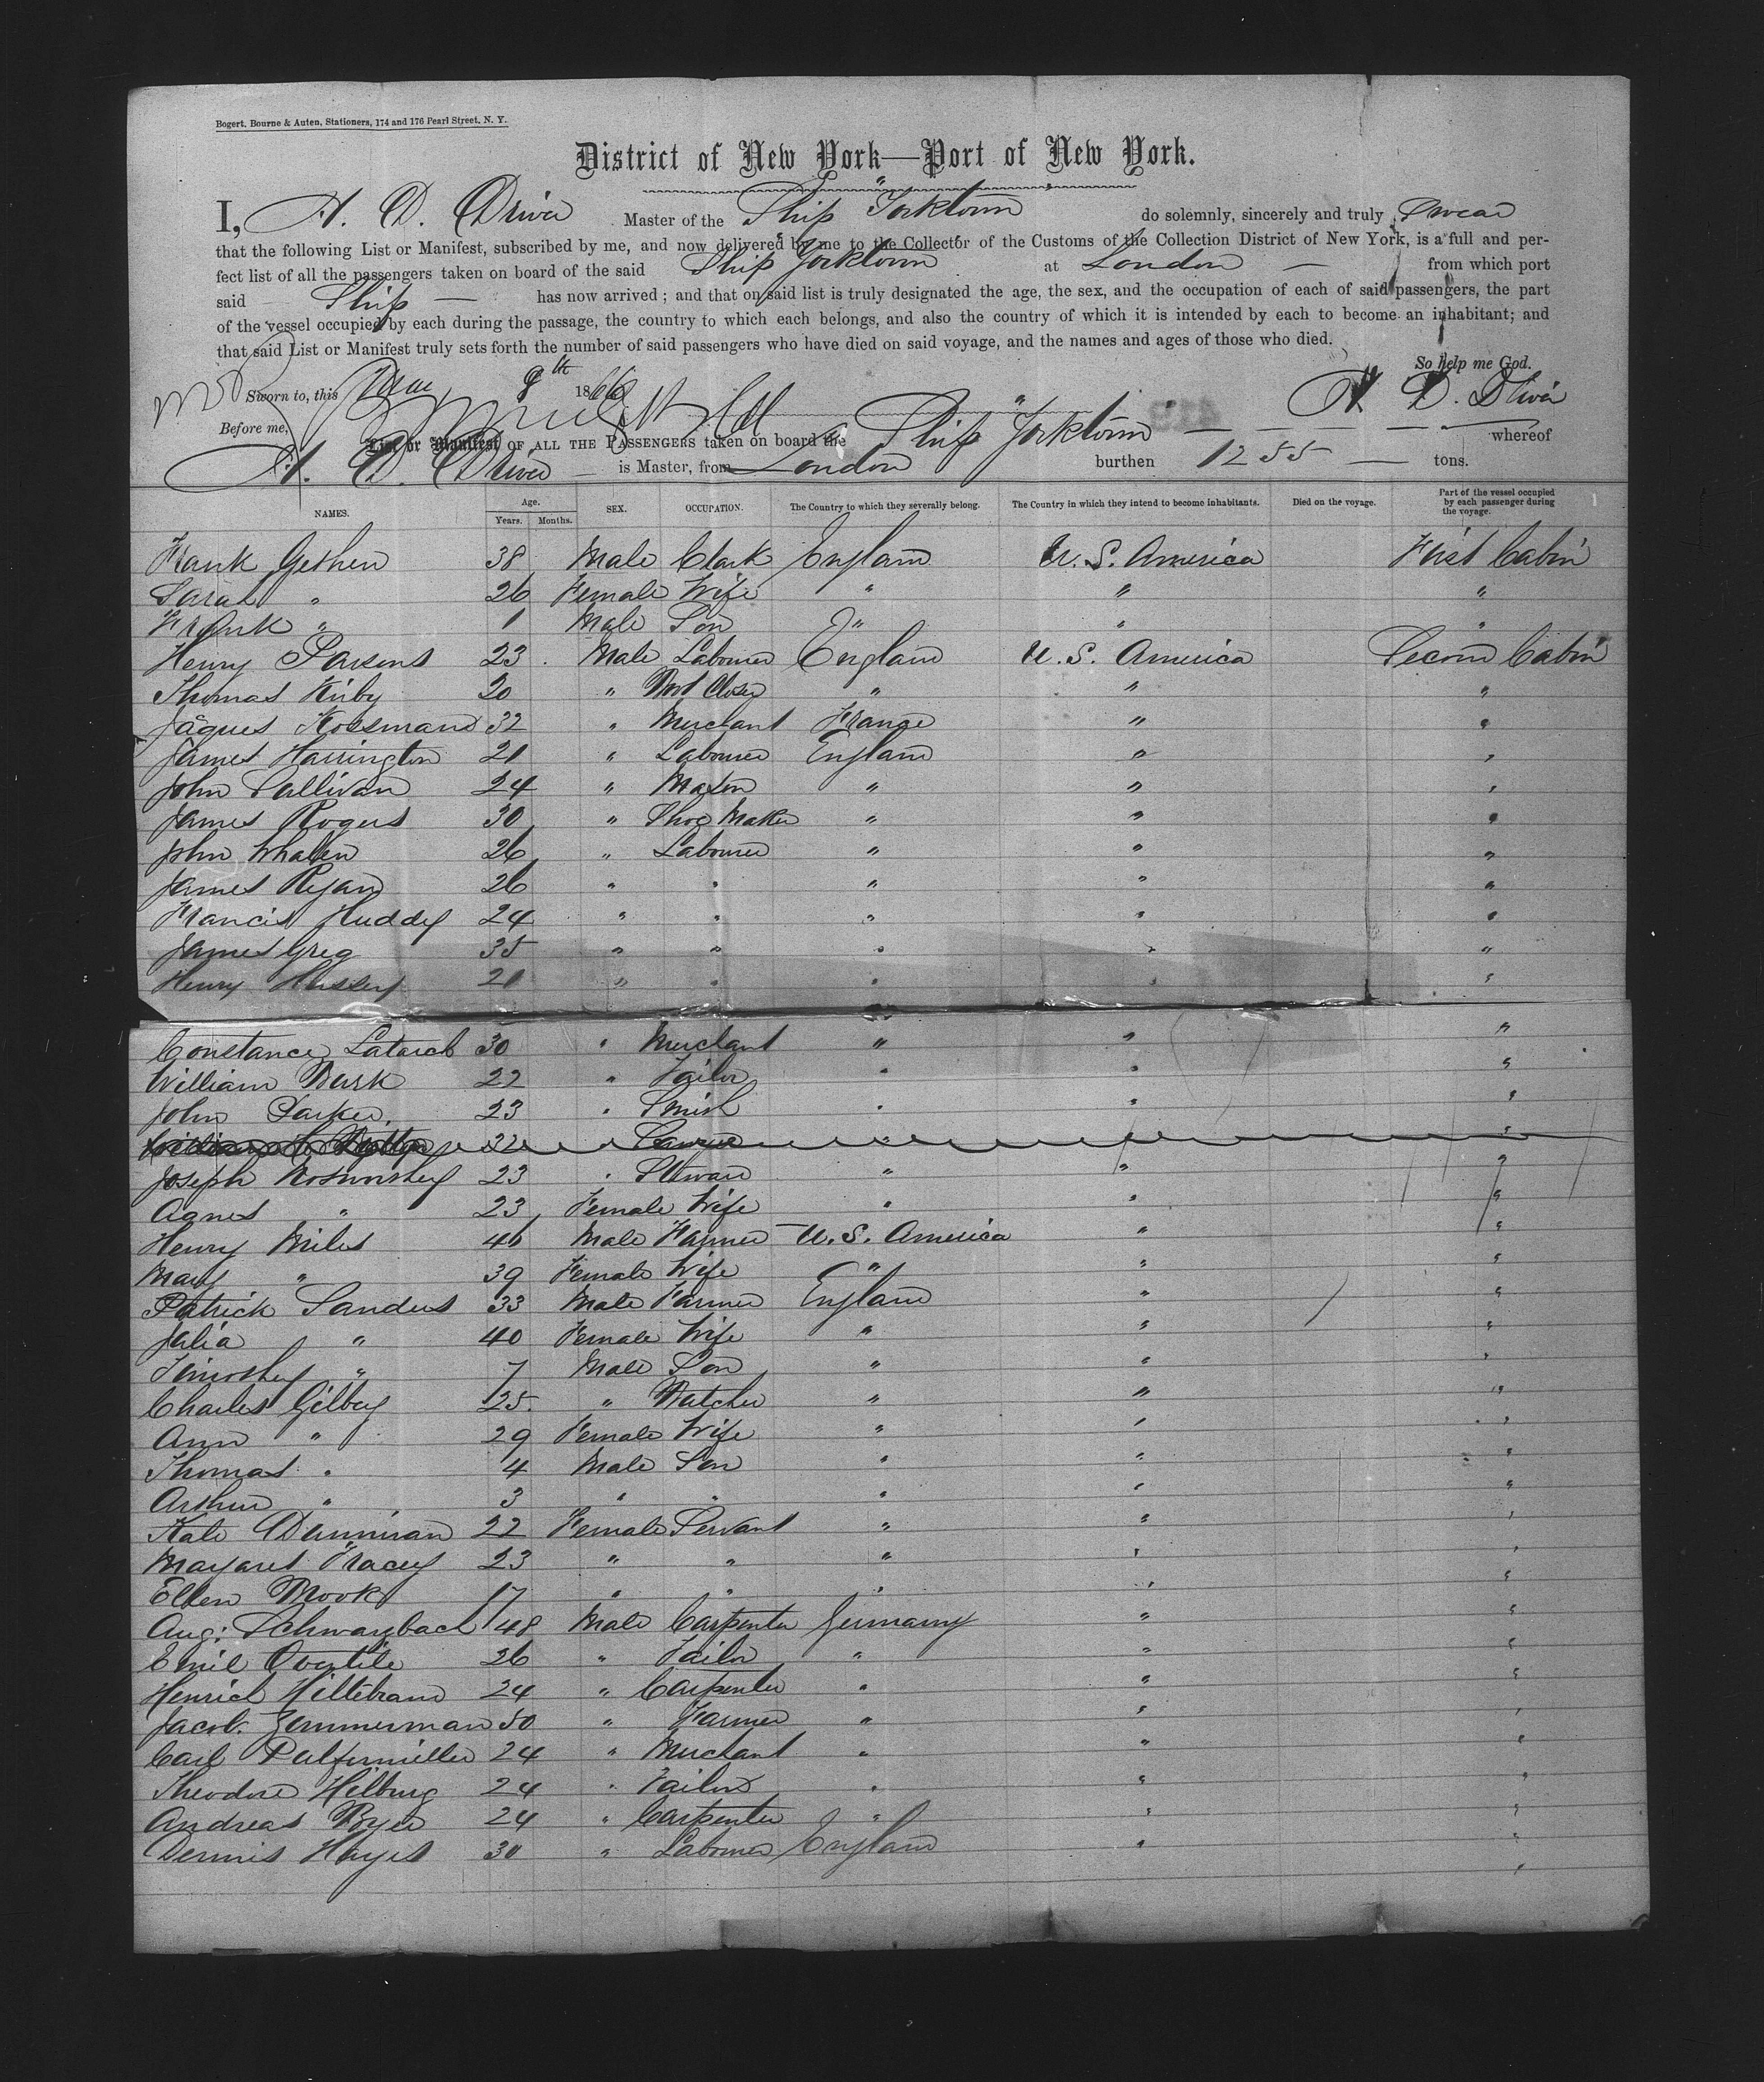 Bogert, Bourne & Auten, Stationers, 174 and 176 Pearl Street, N. Y.
District of New York—Port of New York.
I, A. D. Driver Master of the Ship "Yorktown do solemnly, sincerely and truly Swear
that the following List or Manifest, subscribed by me, and now delivered by me to the Collector of the Customs of the Collection District of New York, is a full and per-
fect list of all the passengers taken on board of the said Ship Yorktown at London — from which port
said Ship — has now arrived; and that on said list is truly designated the age, the sex, and the occupation of each of said passengers, the part
of the vessel occupied by each during the passage, the country to which each belongs, and also the country of which it is intended by each to become an inhabitant; and
that said List or Manifest truly sets forth the number of said passengers who have died on said voyage, and the names and ages of those who died.
So help me God.
Sworn to, this 8th 1866
Before me,
List or Manifest OF ALL THE PASSENGERS taken on board the Ship Yorktown — — — — whereof
A. D. Driver — is Master, from London burthen 1255 — tons.
NAMES. Age. Years. Months. SEX. OCCUPATION. The Country to which they severally belong. The Country in which they intend to become inhabitants. Died on the voyage. Part of the vessel occupied by each passenger during the voyage.
Frank Gethen 38 Male Clark England U. S. America First Cabin
Sarah " 26 Female Wife " " "
Frank " 1 Male Son " " "
Henry Parsons 23 Male Labourer England U. S. America Second Cabin
Thomas Kirby 20 " Closer " " "
Jaques 32 " Merchant France " "
James Harrington 21 " Labourer England " "
John Sullivan 24 " Mason " " "
James Rogers 30 " Shoe Maker " " "
John Whalen 26 " Labourer " " "
James Ryan 26 " " " " "
Francis Huddy 24 " " " " "
James Greg 35 " " " " "
Henry Hussey 21 " " " " "
Constance 30 " Merchant " " "
William 22 " Tailor " " "
John Parker 23 " Smith " " "
22 " " " "
Joseph 23 " " " "
Agnes " 23 Female Wife " " "
Henry Miles 46 Male Farmer U. S. America " "
Mary " 39 Female Wife " " "
Patrick Sanders 33 Male Farmer England " "
Julia " 40 Female Wife " " "
Timothy " 7 Male Son " " "
Charles Gilbey 25 " Butcher " " "
Ann " 29 Female Wife " " "
Thomas " 4 Male Son " " "
Arthur " 3 " " " " "
Kate 22 Female Servant " " "
Margaret Tracey 23 " " " " "
Ellen 17 " " " " "
Aug: Schwarzbach 48 Male Carpenter Germany " "
Emil 26 " Tailor " " "
Henrich Hiltebrand 24 " Carpenter " " "
Jacob Zemmerman 50 " Farmer " " "
Carl 24 " Merchant " " "
Theodore Hilburg 24 " Tailor " " "
Andreas 24 " Carpenter " " "
Dennis Hayes 30 " Labourer England " "